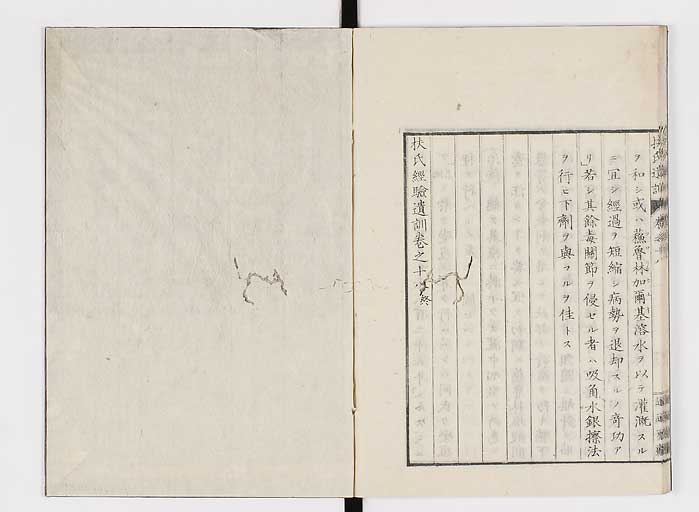 ヲ和シ或ハ蕪魯林加爾基溶水ヲ以テ灌漑スル
ニ冝シ經過ヲ短縮シ病勢ヲ退却スルノ竒功ア
リ若シ其餘毒關節ヲ侵セル者ハ吸角水銀擦法
ヲ行ヒ下劑ヲ與フルヲ佳トス
扶氏經驗遺訓卷之十 終
扶氏遺訓